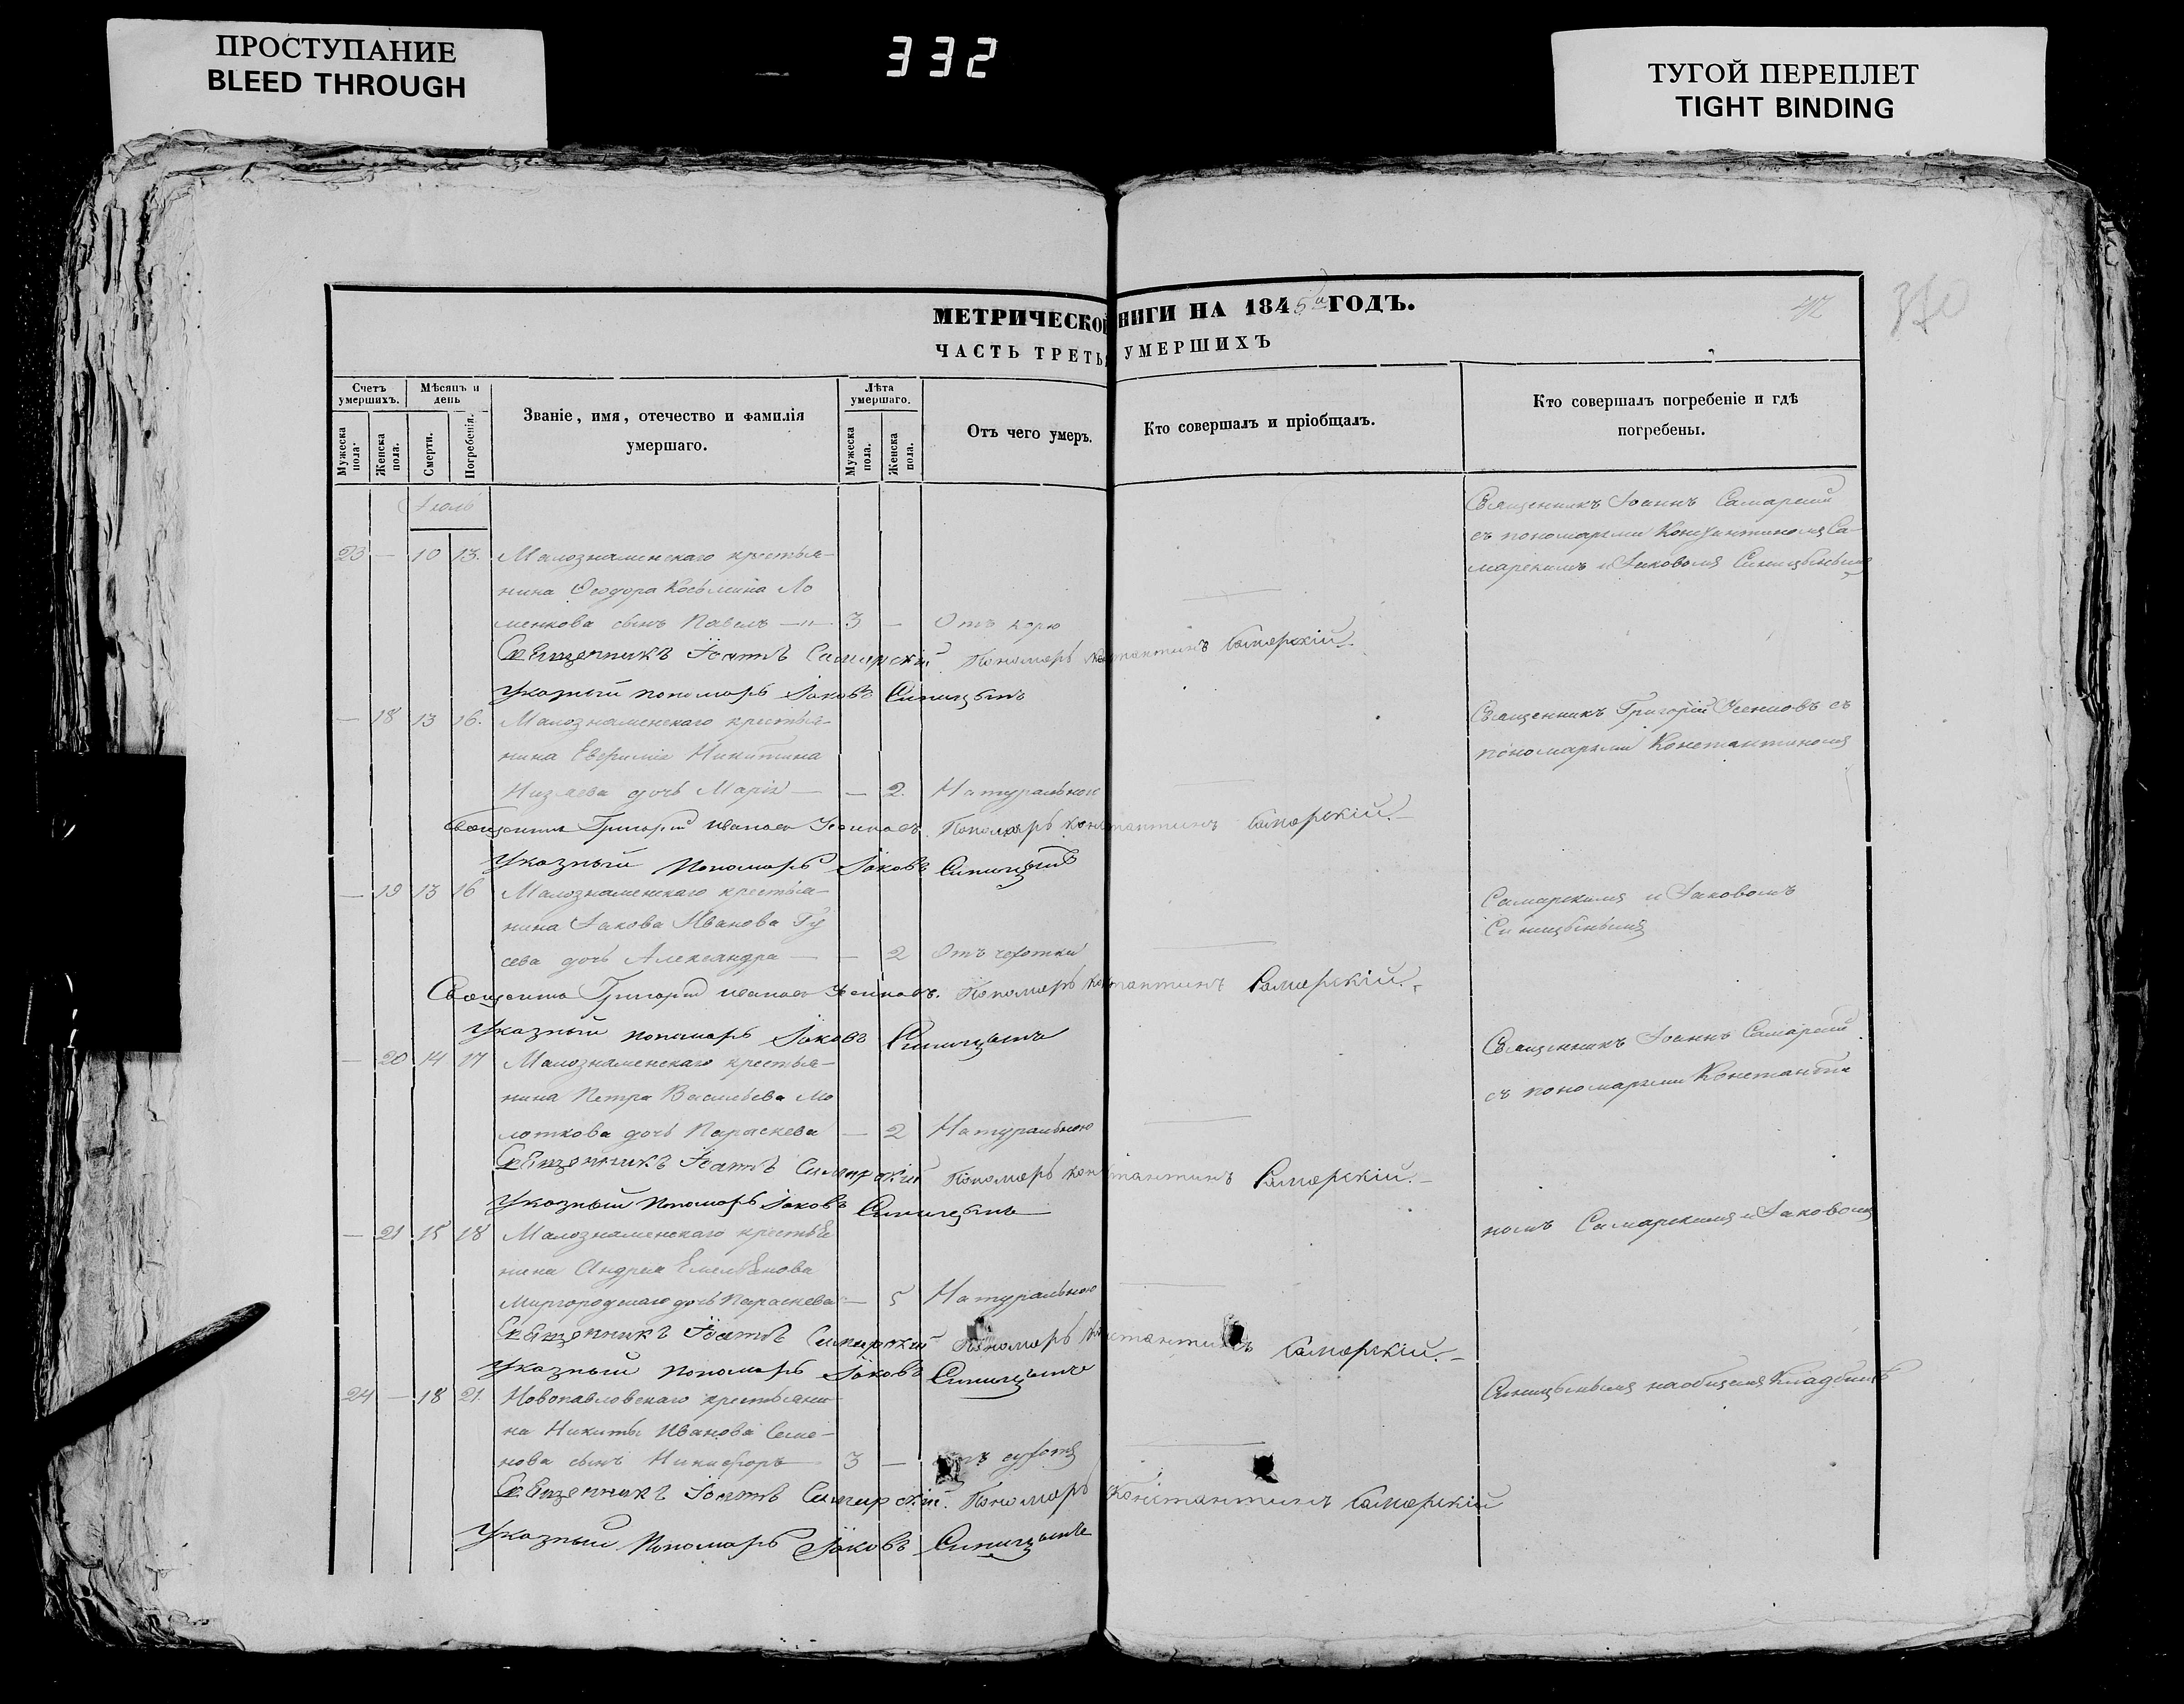 ПРОСТУПАНИЕ
BLEED THROUGH
332
ТУГОЙ ПЕРЕПЛЕТ
TIGHT BINDING
МЕТРИЧЕСКОЙ НИГИ НА 1845й ГОДЪ.
42
ЧАСТЬ ТРЕТЬЯ УМЕРШИХЪ
Счетъ умершихъ.
Мѣсяцъ и день
Мужеска пола.
Женска пола.
Смерти.
Погребенія.
Званіе, имя, отечество и фамилія
умершаго.
Лѣта умершаго.
Мужеска пола.
Женска пола.
Отъ чего умеръ.
Кто совершалъ и пріобщалъ.
Кто совершалъ погребеніе и гдѣ
погребены.
Іюль
Священникъ Іоаннъ Самарскій
съ пономарями Константиномъ Са-
23 — 10 13. Малознаменскаго крестья-
марскимъ и Іаковомъ Синицынымъ
нина Ѳеодора Косьмина Ло
менкова сынъ Павелъ — 3 — Отъ корю
Священникъ Іоаннъ Самарскій Пономарь Константинъ Самарскій.
Указный пономарь Іаковъ Синицынъ
— 18 13 16. Малознаменскаго крестья-
Священникъ Григорій Усенковъ съ
нина Евфимія Никитина
пономарями Константиномъ
Низяева дочь Марія — — 2. Натуральною
Священникъ Григорій Ивановъ Усенковъ. Пономарь Константинъ Самарскій.
Указный Пономарь Іаковъ Синицынъ
— 19 13 16 Малознаменскаго крестья-
Самарскимъ и Іаковомъ
нина Іакова Иванова Гу
Синицынымъ
сева дочь Александра — — 2 Отъ чехотки
Священникъ Григорій Ивановъ Усенковъ. Пономарь Константинъ Самарскій.
Указный пономарь Іаковъ Синицынъ
Священникъ Іоаннъ Самарскій
— 20 14 17 Малознаменскаго крестья-
съ пономарями Константи
нина Петра Васильева Мо
лоткова дочь Параскева — 2 Натуральною
Священникъ Іоаннъ Самарскій Пономарь Константинъ Самарскій.
Указный Пономарь Іаковъ Синицынъ
номъ Самарскимъ и Іаковомъ
— 21 15 18 Малознаменскаго крестья
нина Андрея Емельянова
Миргородскаго дочь Параскева — 5 Натуральною
Священникъ Іоаннъ Самарскій Пономарь Константинъ Самарскій.
Указный пономарь Іаковъ Синицынъ
Синицынымъ на общемъ Кладбищѣ
24 — 18 21. Новопавловскаго крестьяни
на Никиты Иванова Семе-
нова сынъ Никифоръ 3 —
Священникъ Іоаннъ Самарскій. Пономарь Константинъ Самарскій
Указный Пономарь Іаковъ Синицынъ